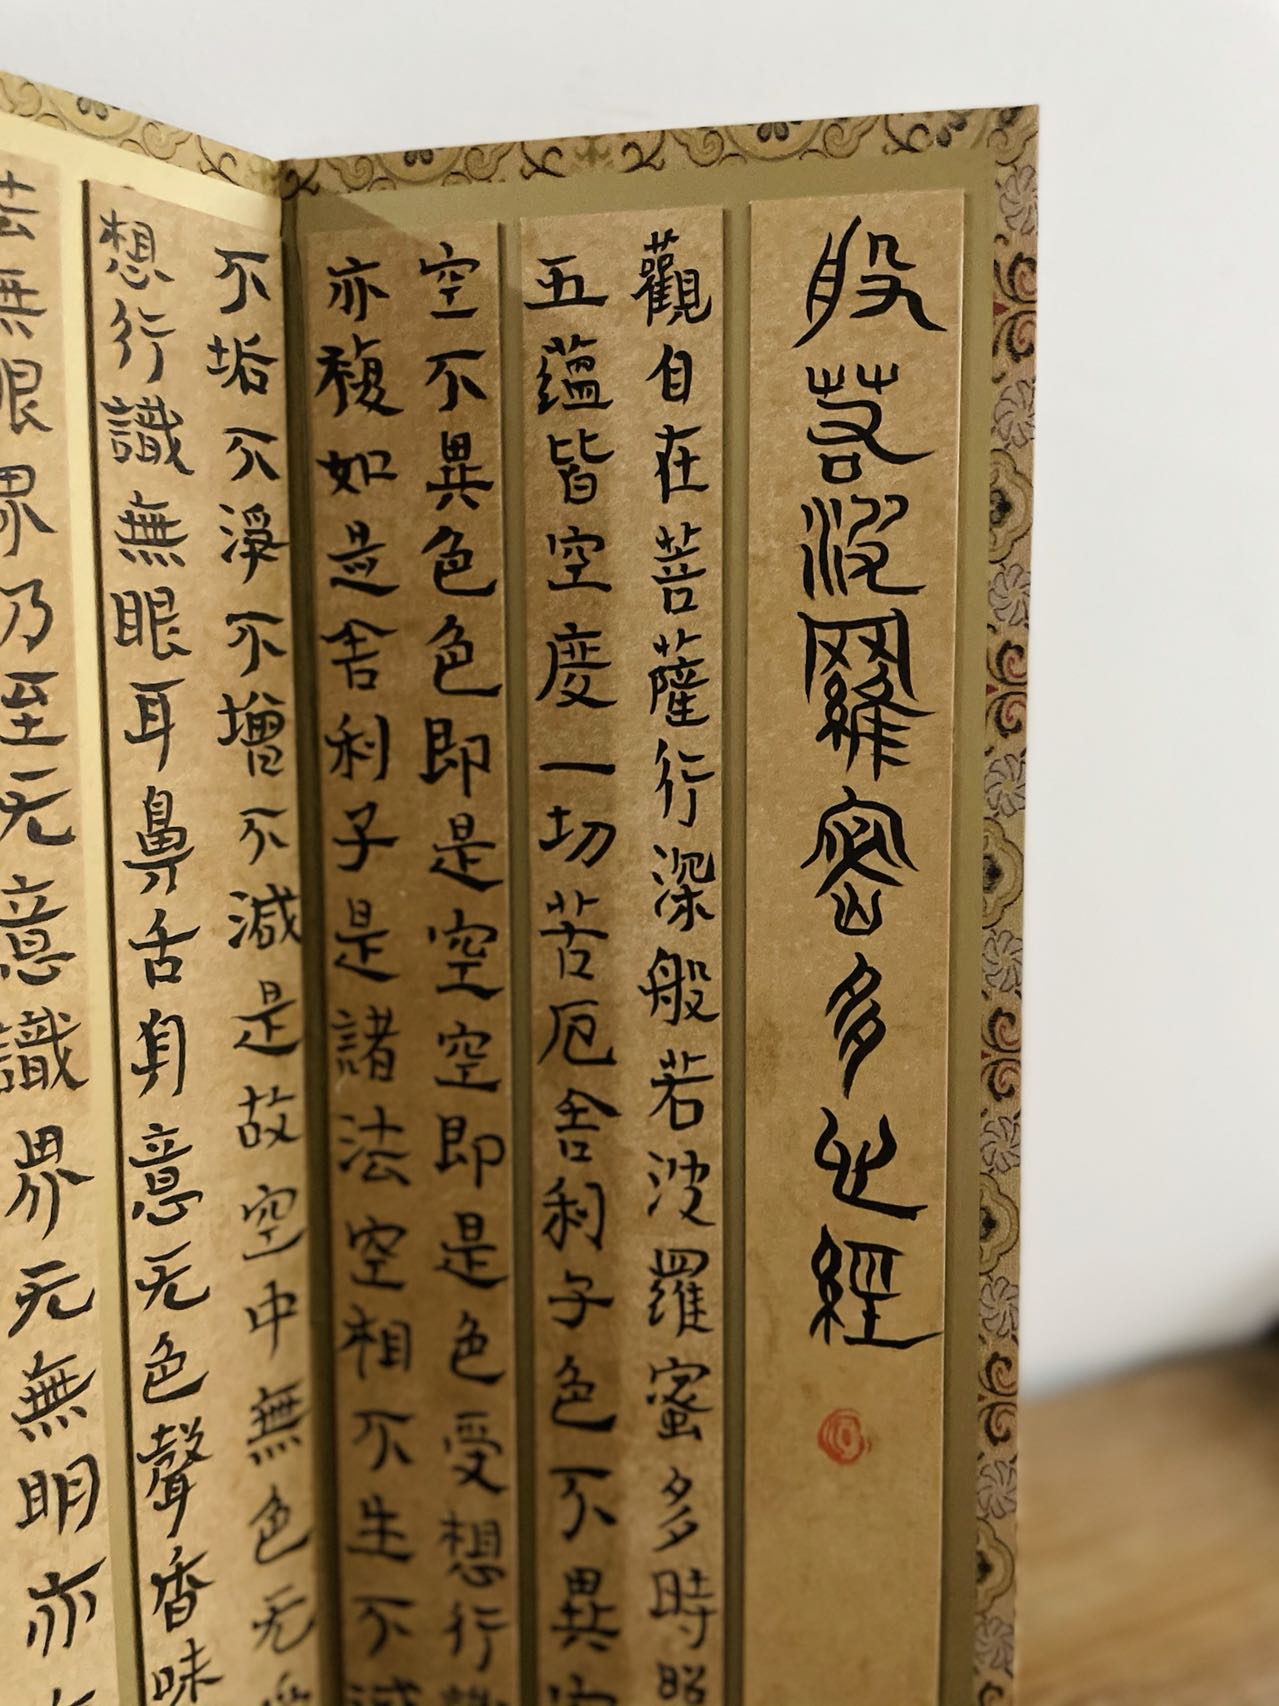 般若波羅密多心經
觀自在菩薩行深般若波羅蜜多時照
五蘊皆空度一切苦厄舍利子色不異空
空不異色色即是空空即是色受想行識
亦複如是舍利子是諸法空相不生不滅
不垢不淨不增不減是故空中無色无受
想行識無眼耳鼻舌身意无色聲香味
法無眼界乃至无意識界无無明亦